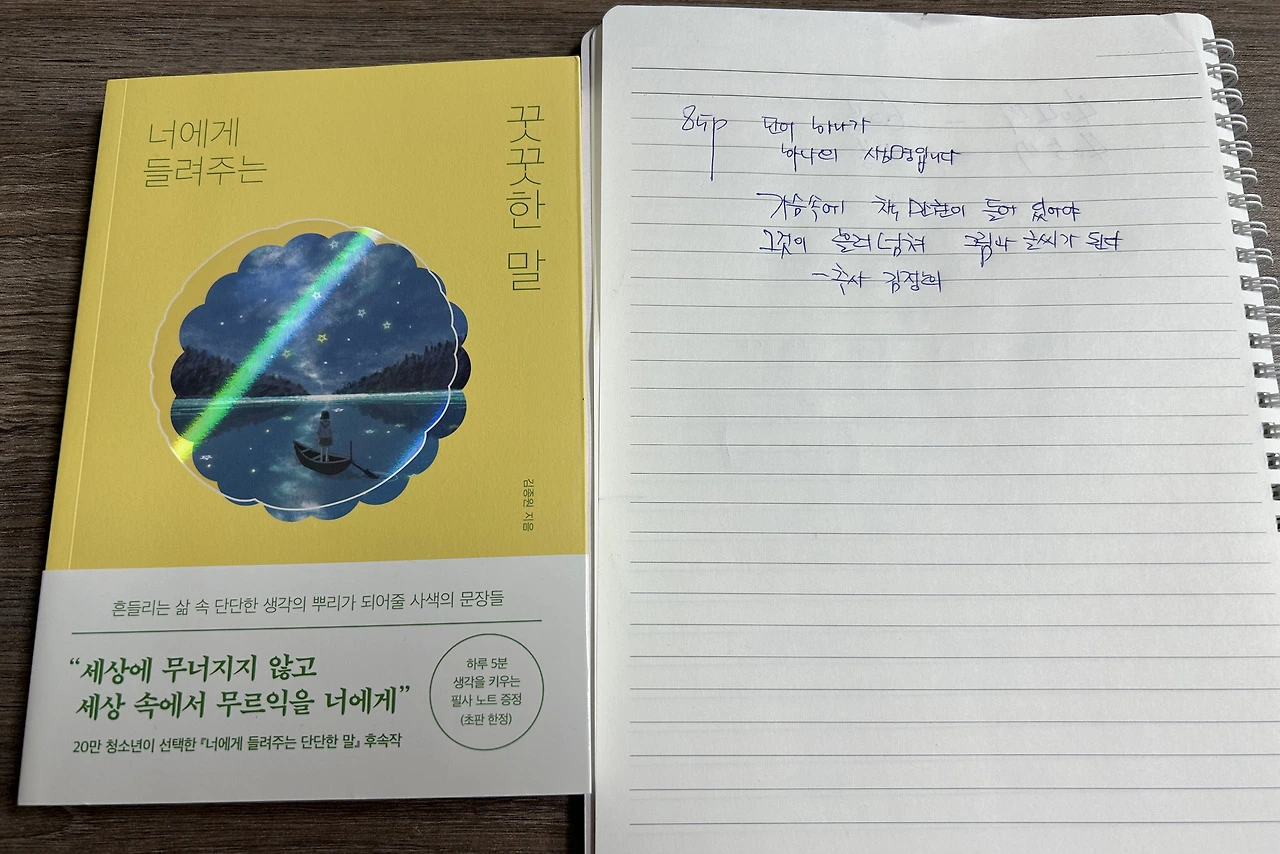 너에게
들려주는
꿋꿋한 말
김종원 지음
흔들리는 삶 속 단단한 생각의 뿌리가 되어줄 사색의 문장들
“세상에 무너지지 않고
세상 속에서 무르익을 너에게”
20만 청소년이 선택한 『너에게 들려주는 단단한 말』 후속작
하루 5분
생각을 키우는
필사 노트 증정
(초판 한정)
단어 하나가
하나의 생명입니다
가슴속에 책 만권이 들어 있어야
그것이 흘러 넘쳐 그림과 글씨가 된다
- 추사 김정희